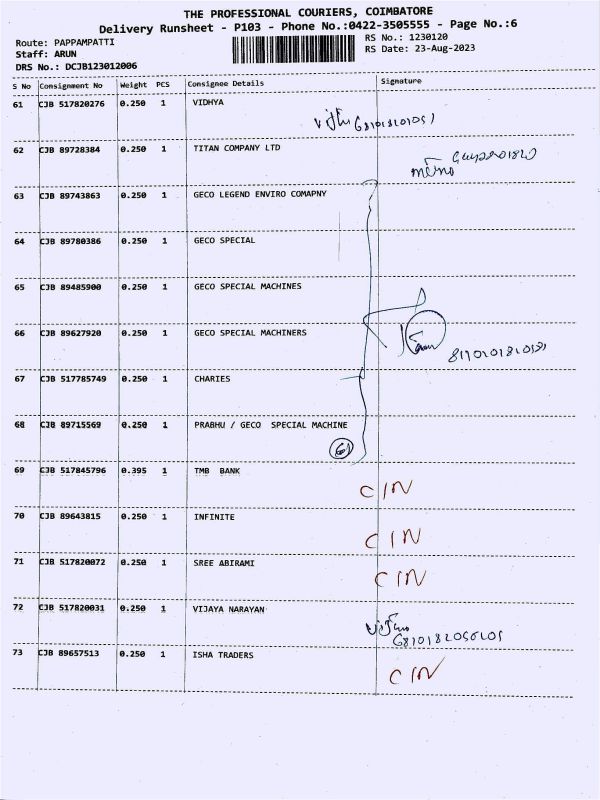 THE PROFESSIONAL COURIERS, COIMBATORE
Delivery Runsheet - P103 - Phone No.:0422-3505555 - Page No.:6
Route: PAPPAMPATTI
Staff: ARUN
DRS No.: DCJB123012006
RS No.: 1230120
RS Date: 23-Aug-2023
S No Consignment No Weight PCS Consignee Details Signature
61 CJB 517820276 0.250 1 VIDHYA
62 CJB 89728384 0.250 1 TITAN COMPANY LTD
63 CJB 89743863 0.250 1 GECO LEGEND ENVIRO COMAPNY
64 CJB 89780386 0.250 1 GECO SPECIAL
65 CJB 89485900 0.250 1 GECO SPECIAL MACHINES
66 CJB 89627920 0.250 1 GECO SPECIAL MACHINERS
67 CJB 517785749 0.250 1 CHARIES
68 CJB 89715569 0.250 1 PRABHU / GECO SPECIAL MACHINE
6
69 CJB 517845796 0.395 1 TMB BANK CIN
70 CJB 89643815 0.250 1 INFINITE CIN
71 CJB 517820072 0.250 1 SREE ABIRAMI CIN
72 CJB 517820031 0.250 1 VIJAYA NARAYAN
73 CJB 89657513 0.250 1 ISHA TRADERS CIN